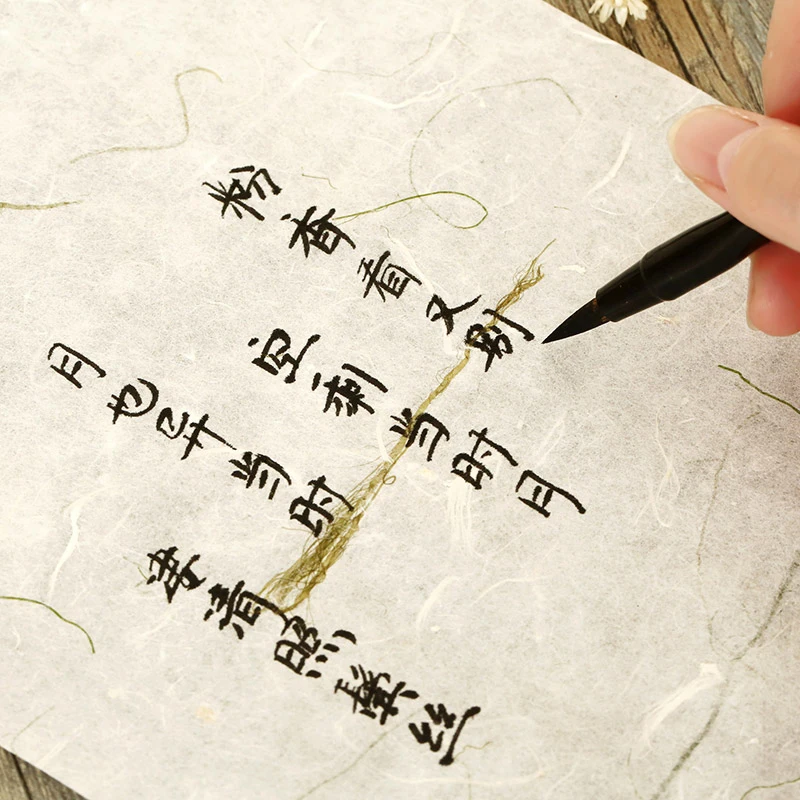 粉香看又别
空剩当时月
月也异当时
凄清照鬓丝